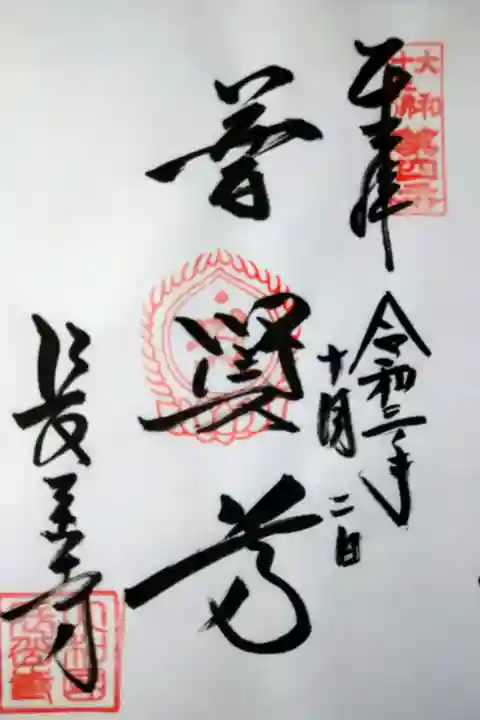 大和
十三佛
第四番
奉拝
令和二年
十月二日
普賢
長岳寺